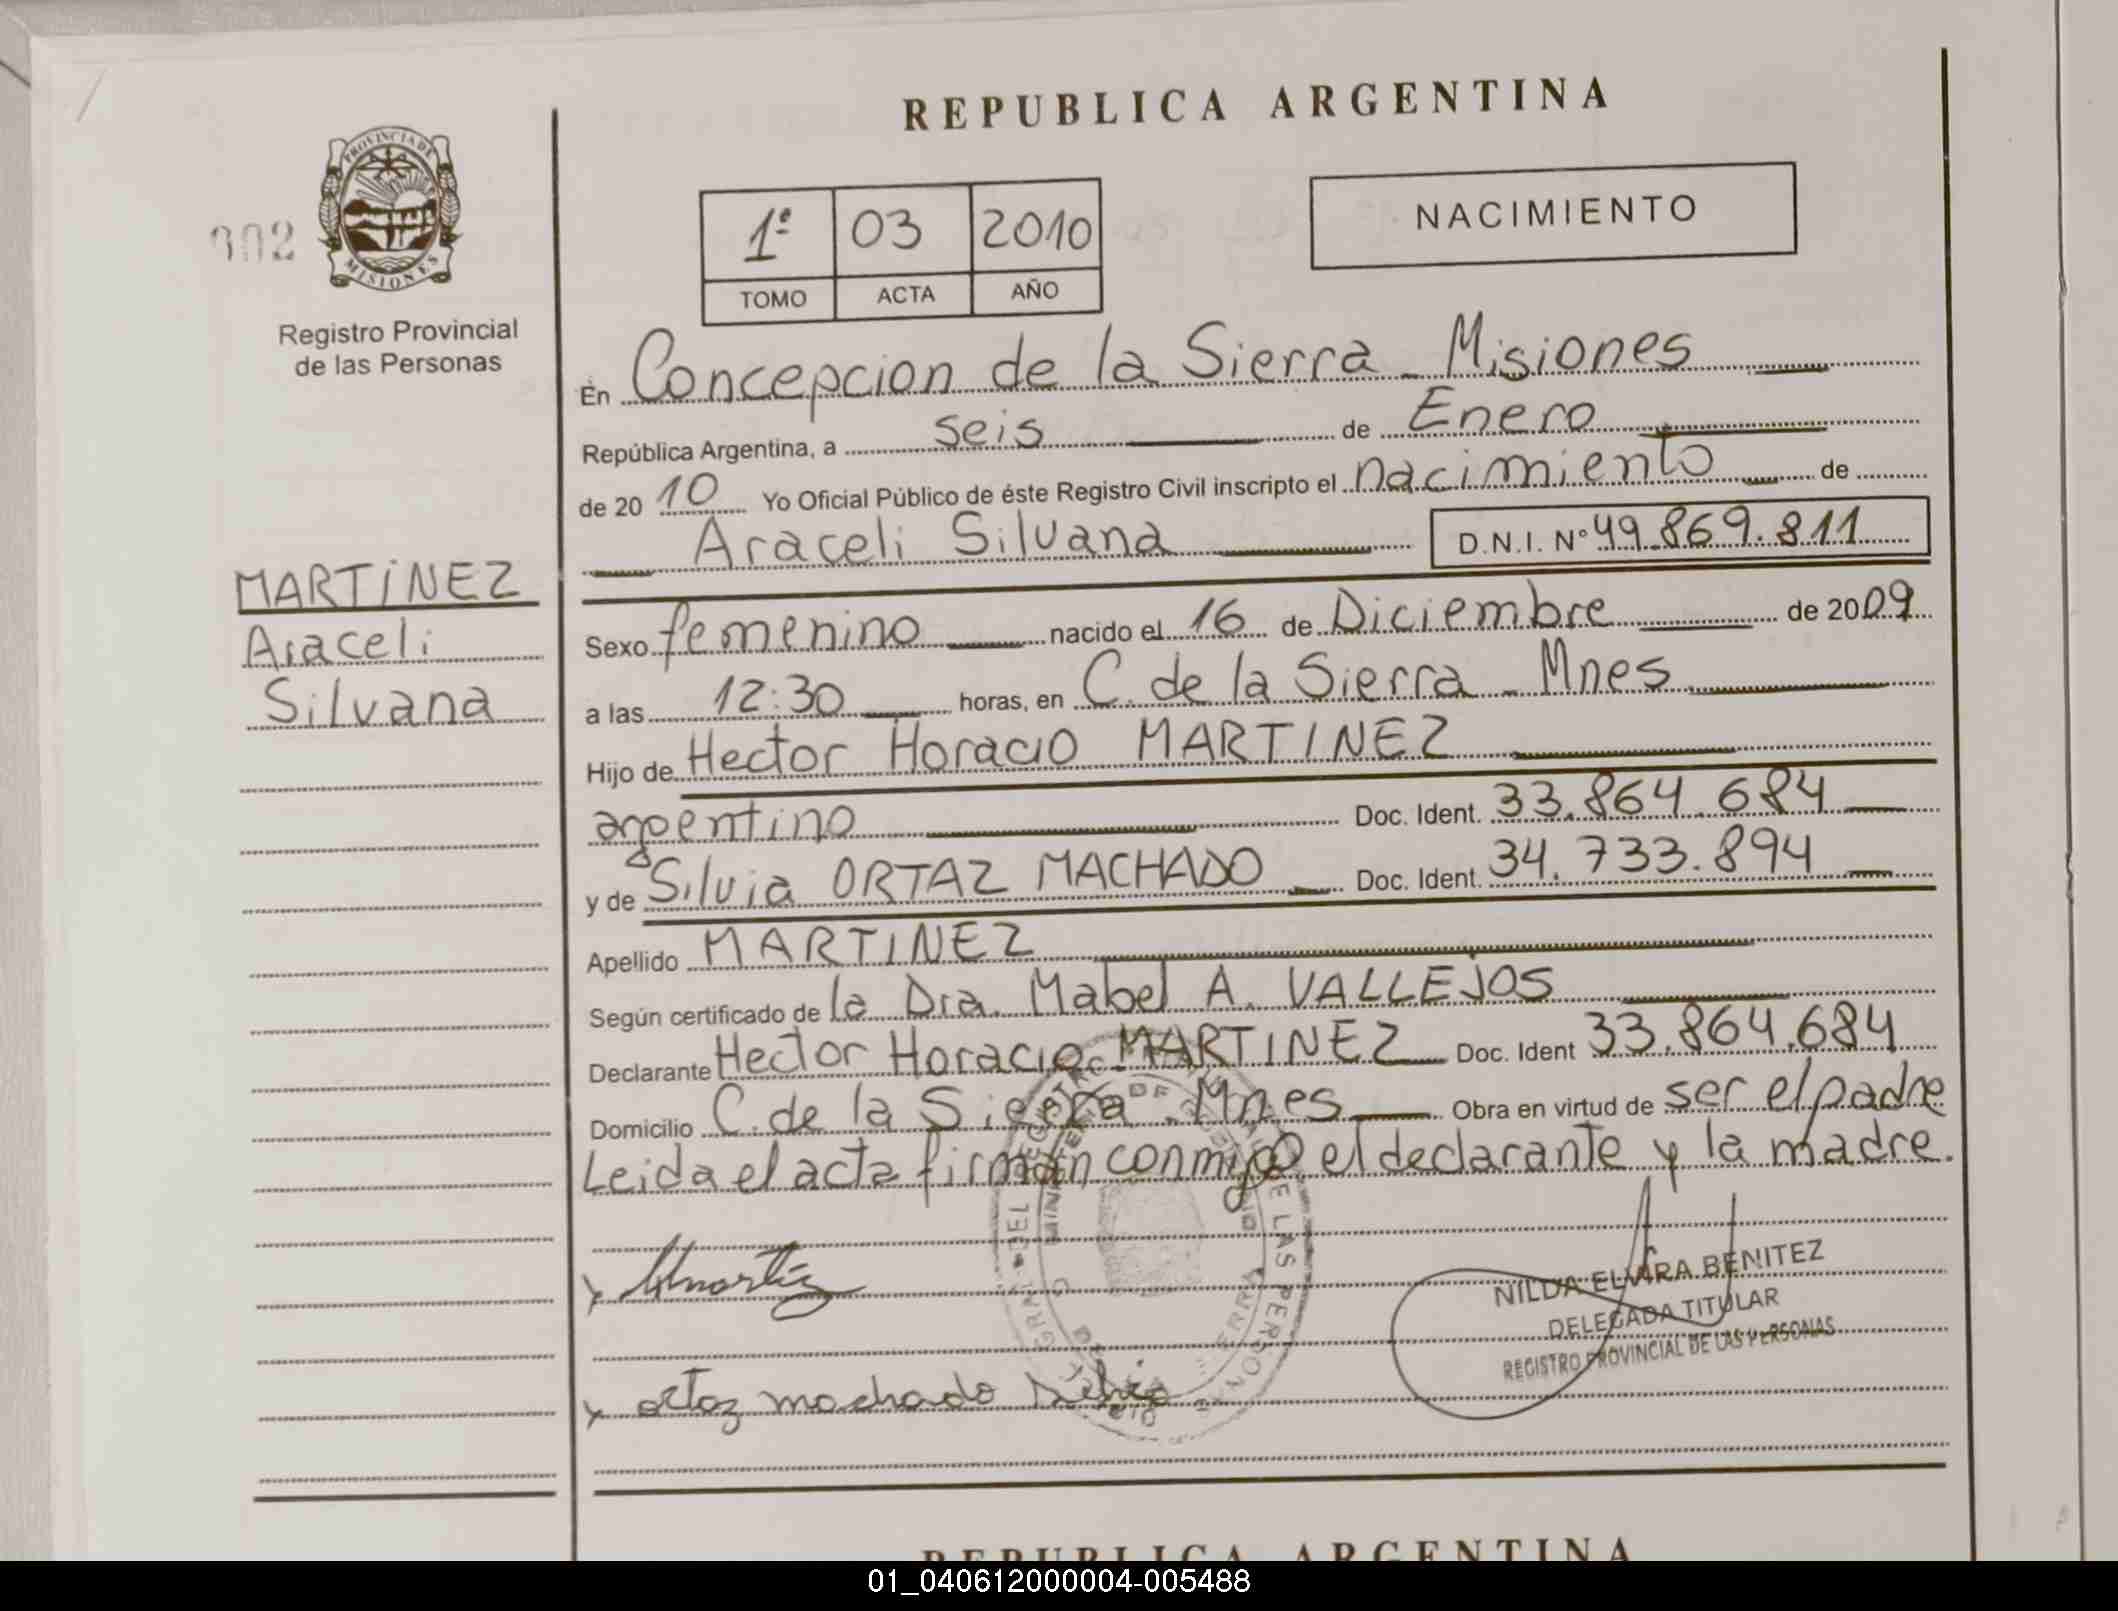 REPUBLICA ARGENTINA
PROVINCIA DE MISIONES
002
Registro Provincial
de las Personas
1º 03 2010
TOMO ACTA AÑO
NACIMIENTO
En Concepcion de la Sierra - Misiones
República Argentina, a seis de Enero
de 2010 Yo Oficial Público de éste Registro Civil inscripto el nacimiento de
Araceli Silvana D.N.I. Nº 49.869.811
MARTÍNEZ
Araceli
Silvana
Sexo femenino nacido el 16 de Diciembre de 2009
a las 12:30 horas, en C. de la Sierra - Mnes
Hijo de Hector Horacio MARTINEZ
argentino Doc. Ident. 33.864.684
y de Silvia ORTAZ MACHADO Doc. Ident. 34.733.894
Apellido MARTINEZ
Según certificado de la Dra. Mabel A. VALLEJOS
Declarante Hector Horacio MARTINEZ Doc. Ident 33.864.684
Domicilio C. de la Sierra - Mnes Obra en virtud de ser el padre
Leida el acta firman conmigo el declarante y la madre.
NILDA ELVIRA BENITEZ
DELEGADA TITULAR
REGISTRO PROVINCIAL DE LAS PERSONAS
ortaz machado Silvia
REPUBLICA ARGENTINA
01_040612000004-005488